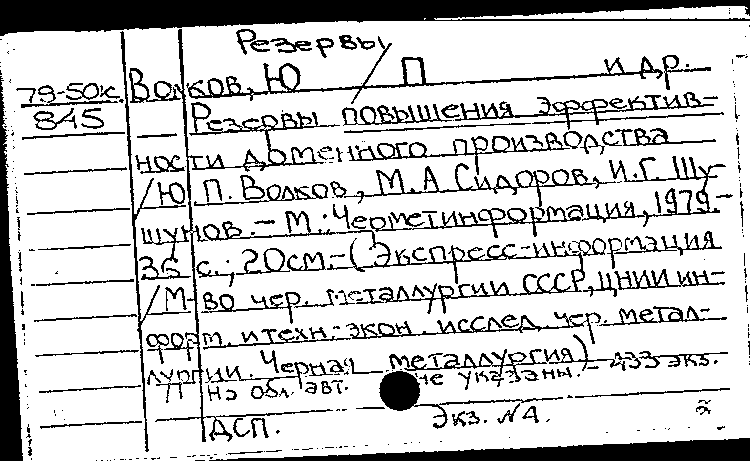 Резервы
79-50к. Волков, Ю П и др.
845 Резервы повышения эффектив-
ности доменного производства
/Ю.П. Волков, М.А Сидоров, И.Г. Шу-
шунов. – М.: Черметинформация, 1979.–
36 с.; 20см.–(Экспресс-информация
/М-во чер. металлургии СССР, ЦНИИ ин-
форм. и техн.-экон. исслед. чер. метал-
лургии. Черная металлургия)
На обл. авт. не указаны. – 433 экз.
ДСП. Экз. N4.